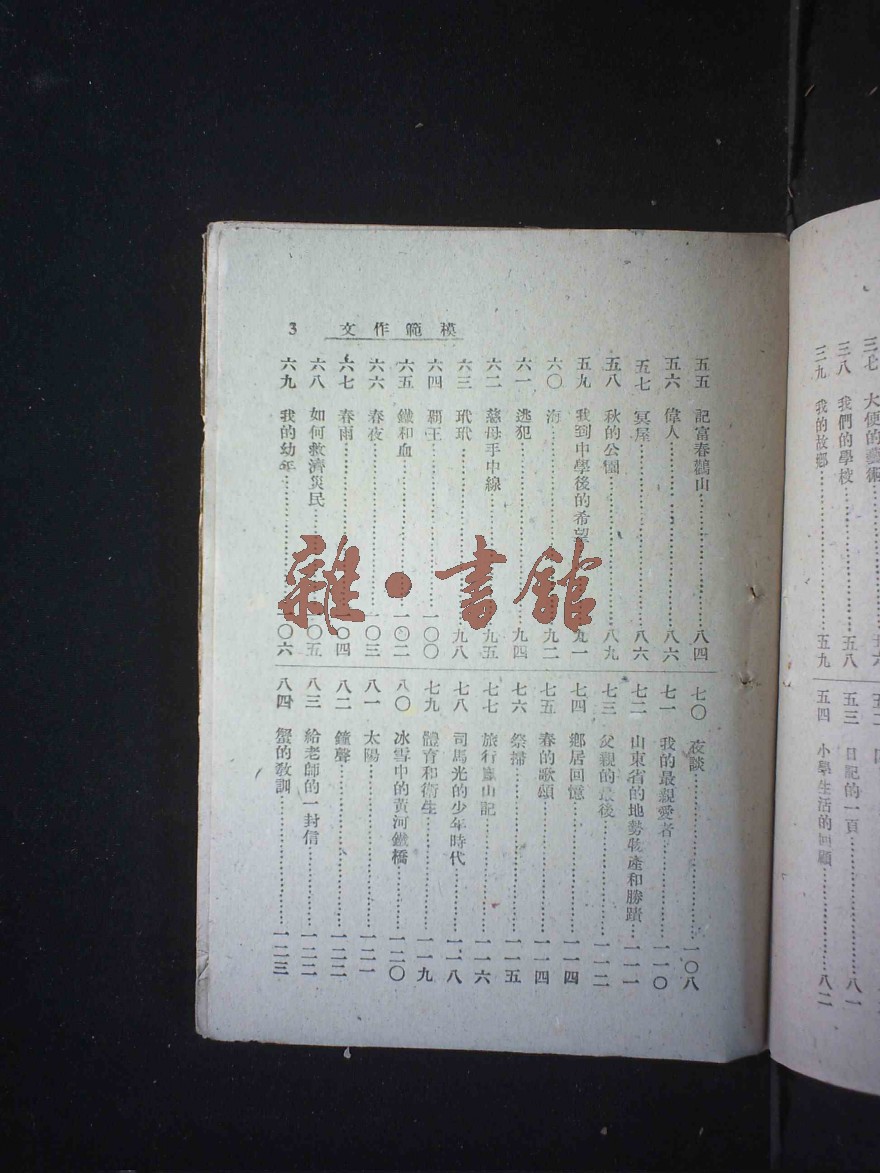 三七 大便的藝術
三八 我們的學校……五八
三九 我的故鄉……五九
五三 日記的一頁……八一
五四 小學生活的回顧……八二
模範作文 3
五五 記富春鸛山……八四
五六 偉人……八六
五七 冥屋……八六
五八 秋的公園……八九
五九 我到中學後的希望……九一
六〇 海……九二
六一 逃犯……九四
六二 慈母手中線……九五
六三 玳玳……九八
六四 覇王……一〇〇
六五 鐵和血……一〇二
六六 春夜……一〇三
六七 春雨……一〇四
六八 如何救濟災民……一〇五
六九 我的幼年……一〇六
七〇 夜談……一〇八
七一 我的最親愛者……一一〇
七二 山東省的地勢物產和勝蹟……一一一
七三 父親的最後……一一二
七四 鄉居回憶……一一四
七五 春的歌頌……一一四
七六 祭掃……一一五
七七 旅行嵐山記……一一六
七八 司馬光的少年時代……一一八
七九 體育和衛生……一一九
八〇 冰雪中的黃河鐵橋……一二〇
八一 太陽……一二一
八二 鐘聲……一二二
八三 給老師的一封信……一二二
八四 蟹的敎訓……一二三
雜·書館